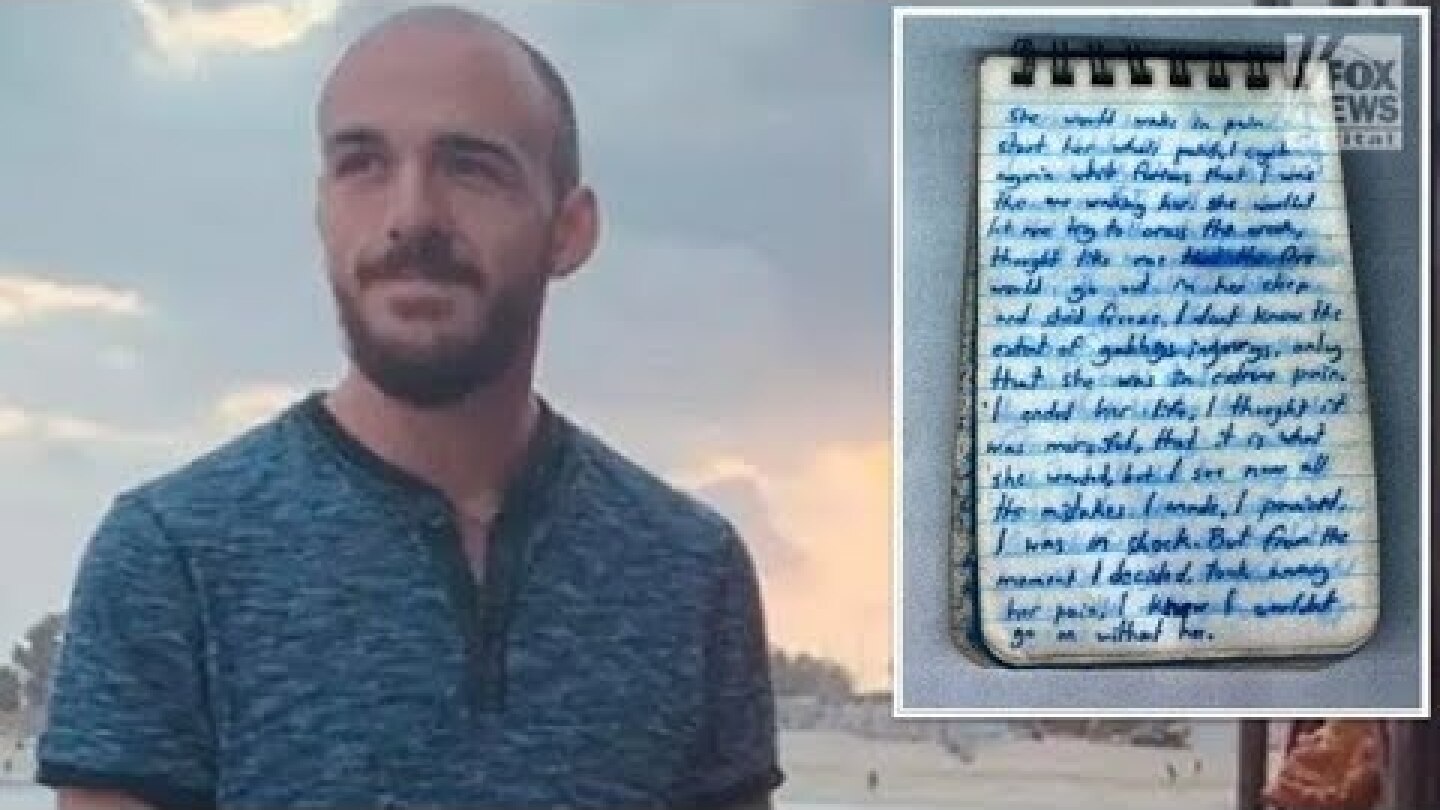 FOX
NEWS
digital
she would wake in pain
start her whole painful cycle
again while furious that I was
the one waking her. she wouldn't
let me try to cross the creek,
thought like me the fire
would go out in her sleep
and she'd freeze. I don't know the
extent of gabbys injurys, only
that she was in extreme pain.
I ended her life, I thought it
was merciful, that it is what
she wanted, but I see now all
the mistakes I made, I panicked.
I was in shock. But from the
moment I decided, took away
her pain, I knew I wouldn't
go on without her.